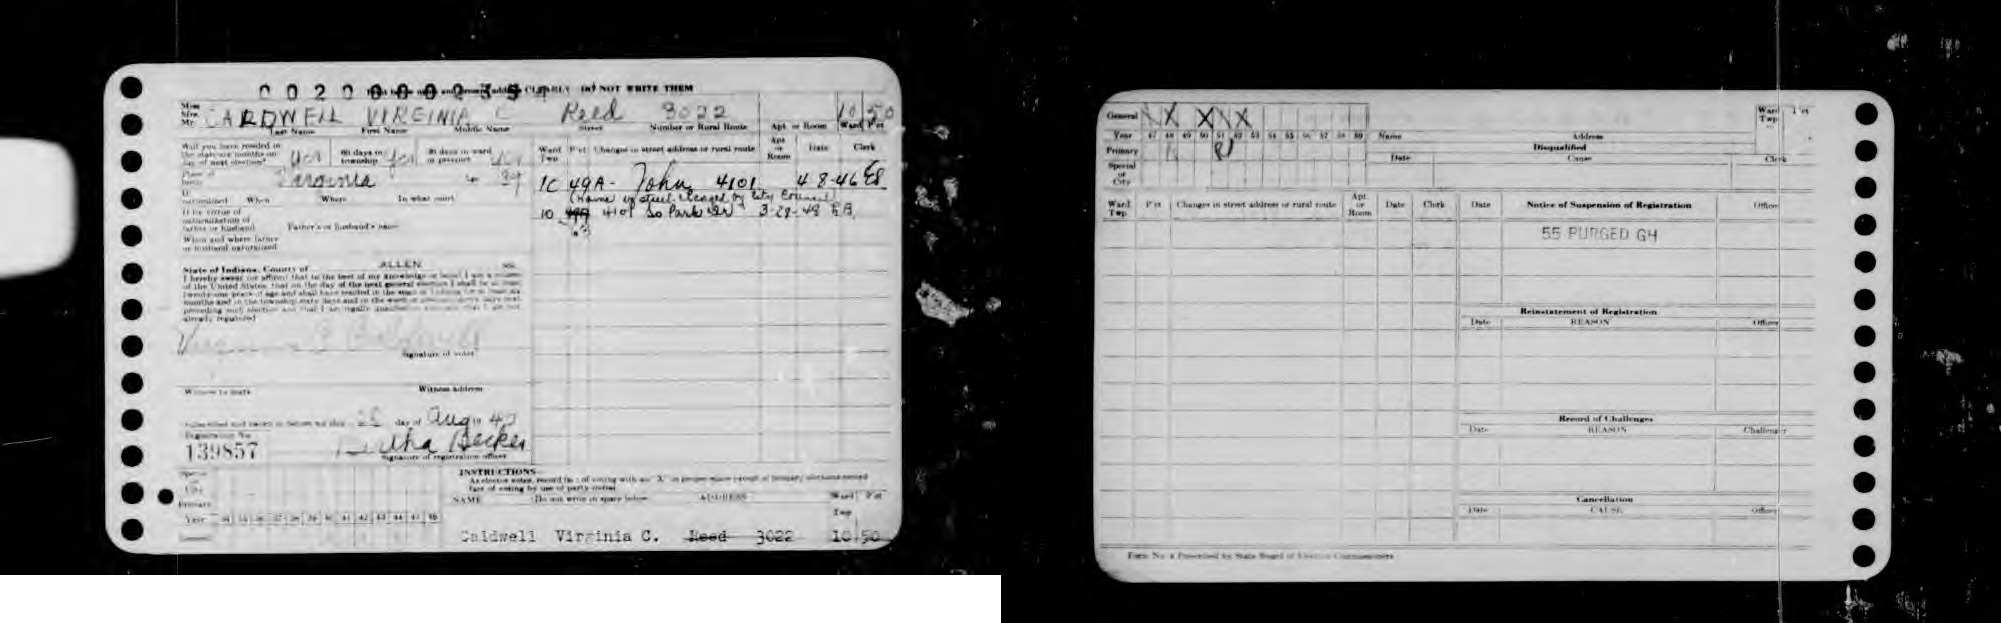 0020000035
CLEARLY DO NOT WRITE THEM
Miss
Mrs.
Mr. CARDWELL VIRGINIA C Reed 3022 10 50
Last Name First Name Middle Name Street Number or Rural Route Apt. or Room Ward P'ct
Will you have resided in the state six months on day of next election? 60 days in township 30 days in ward or precinct
Ward Twp. P'ct Changes in street address or rural route Apt. or Room Date Clerk
Place of birth Virginia
10 49A- John 4101 4 8-46 EB
(Name of street changed by City Council)
10 4101 So Park Dr 3-29-48 EB
If naturalized When Where In what court
If by virtue of naturalization of father or husband Father's or husband's name
When and where father or husband naturalized
State of Indiana, County of ALLEN ss:
I hereby swear (or affirm) that to the best of my knowledge or belief I am a citizen
of the United States, that on the day of the next general election I shall be at least
twenty-one years of age and shall have resided in the state of Indiana for at least six
months and in the township sixty days and in the ward or precinct thirty days next
preceding such election and that I am legally
already registered
Signature of voter
Witness to mark Witness address
Subscribed and sworn to before me this day of Aug 19 40
Registration No.
139857 Bertha Becker
Signature of registration officer
INSTRUCTIONS
As elector votes, record fact of voting with an "X" in proper space except at primary elections record
fact of voting by use of party initial
NAME Do not write in space below ADDRESS Ward Twp. P'ct
Special or City
Primary
Year
Caldwell Virginia C. Reed 3022 10 50
General X X X X
Year 47 48 49 50 51 52 53 54 55 56 57 58 59 Name Address
Ward Twp. P'ct
Primary R
Disqualified
Date Cause Clerk
Special or City
Ward Twp. P'ct Changes in street address or rural route Apt. or Room Date Clerk Date Notice of Suspension of Registration Officer
55 PURGED G4
Reinstatement of Registration
Date REASON Officer
Record of Challenges
Date REASON Challenger
Cancellation
Date CAUSE Officer
Form No. 4 Prescribed by State Board of Election Commissioners